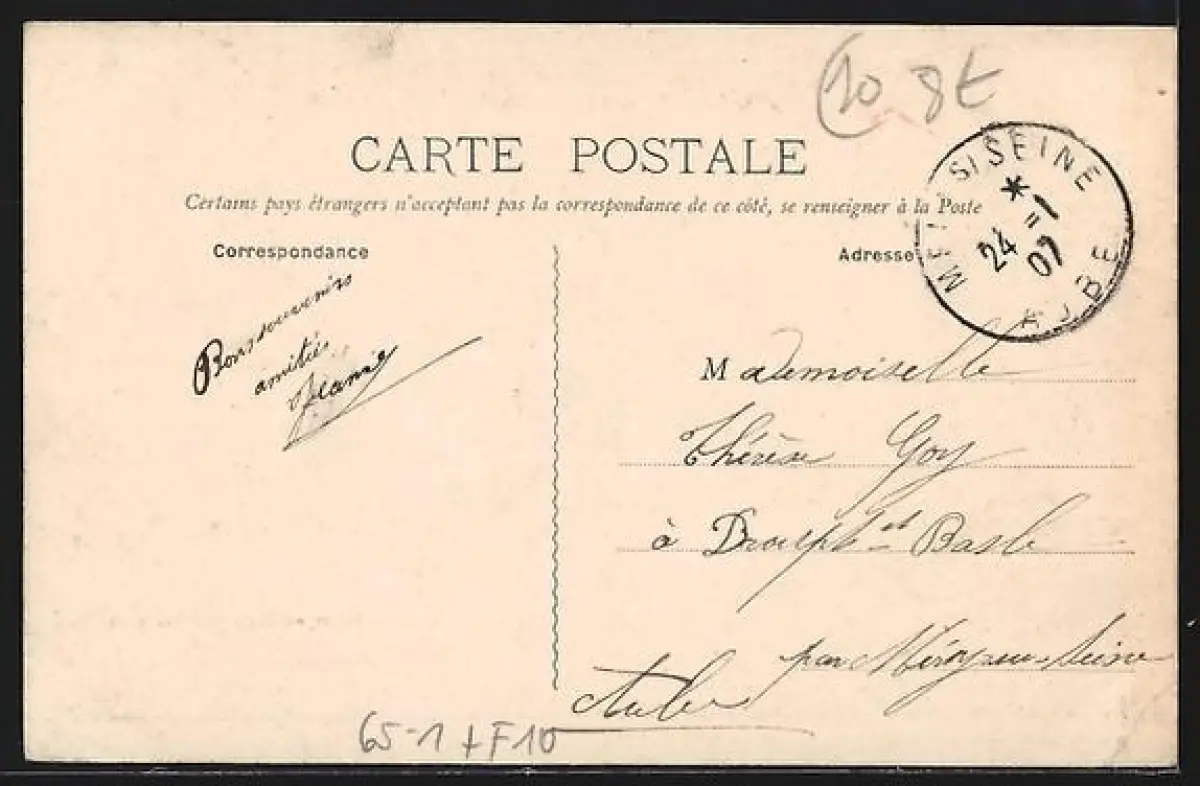 (10 8t
CARTE POSTALE
Certains pays étrangers n'acceptant pas la correspondance de ce côté, se renseigner à la Poste
MÉRY S/ SEINE
* 24 -1 07
AUBE
Correspondance
Adresse
Bons souvenirs
amitiés
Mademoiselle
Thérèse Goy
à Droupt st Basle
par Méry-sur-Seine
Aube
65-1 + F10